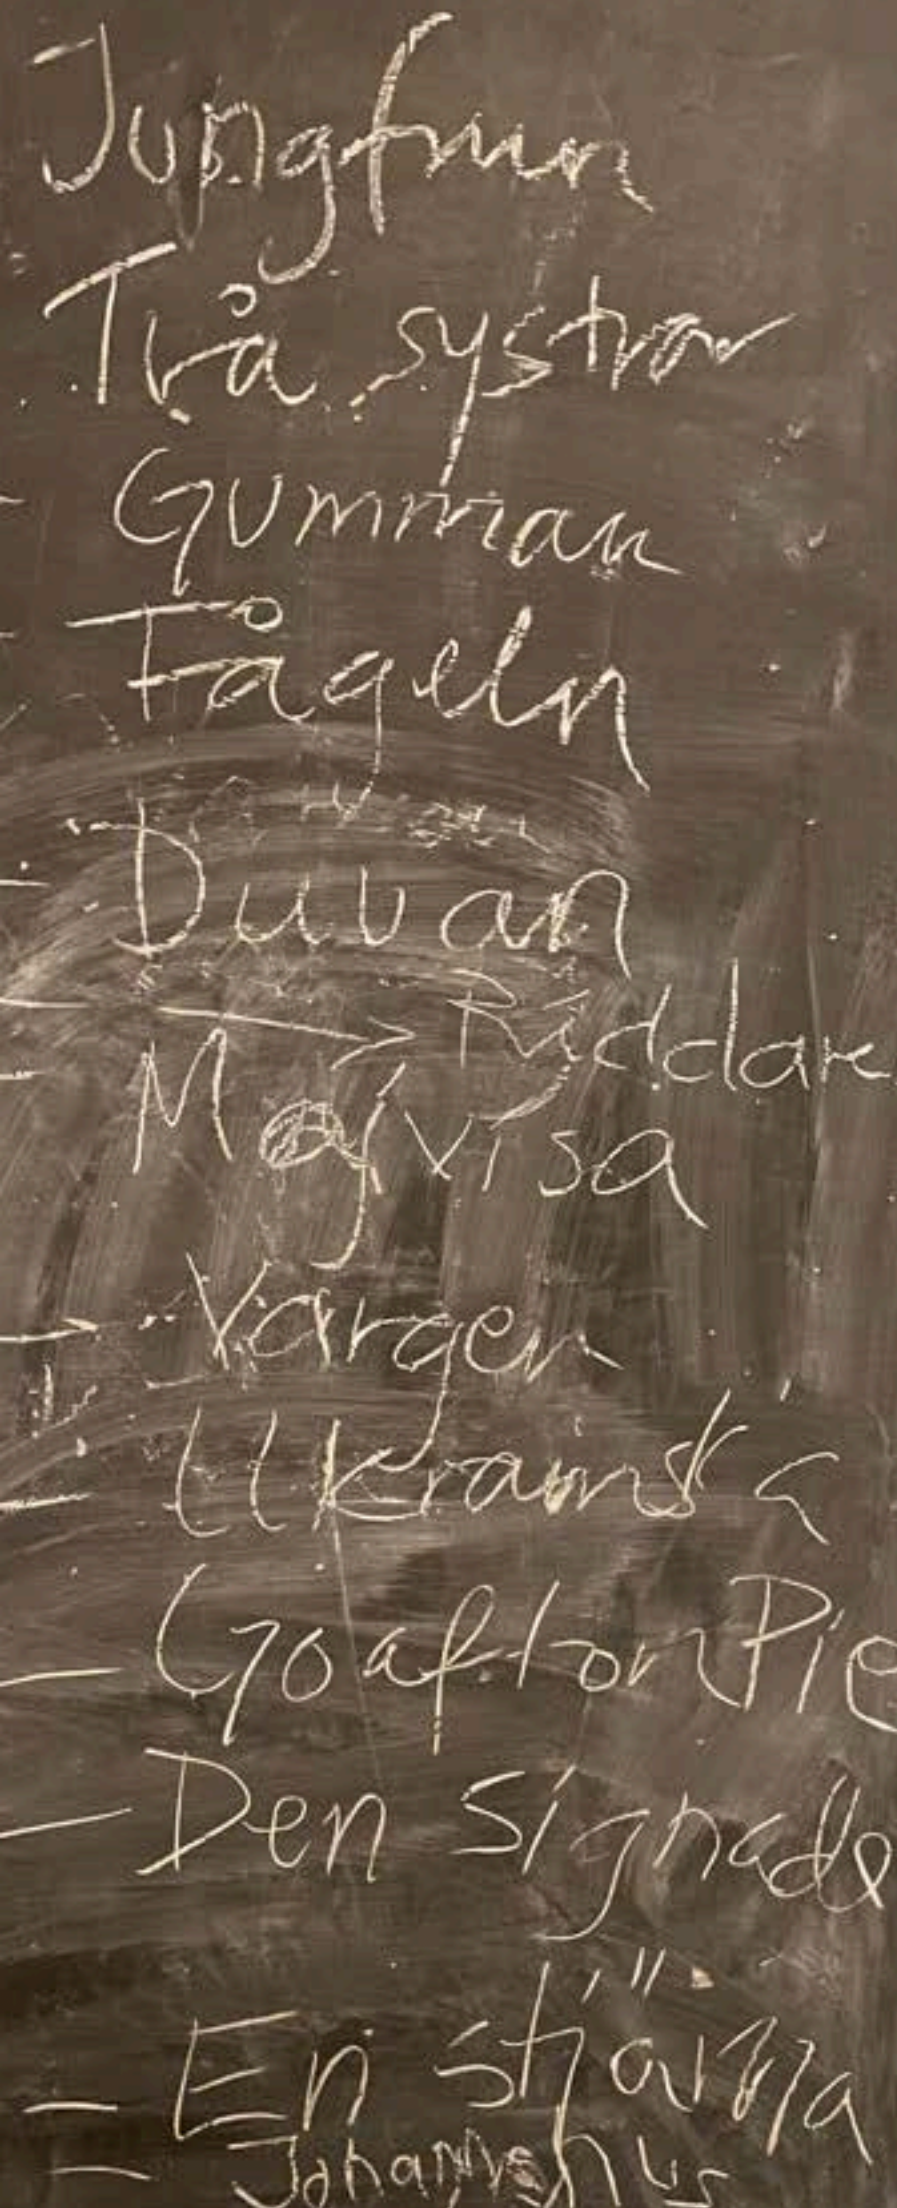 Jungfrun
Två systrar
Gumman
Fågeln
Duvan
→ Riddare
Majvisa
Vargen
Ukrainska
Go afton Pie
Den signade
En stjärna
Johannes hus